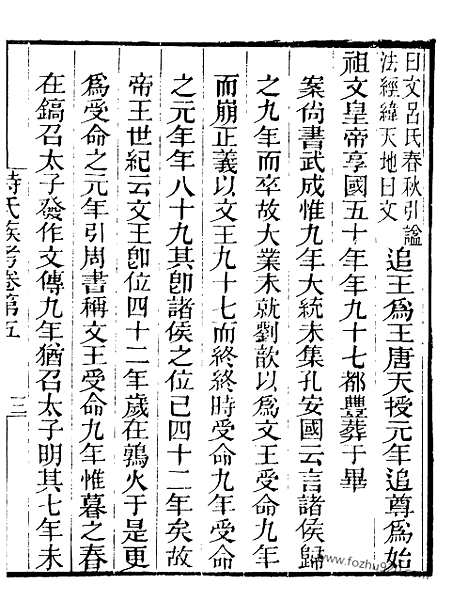 曰文呂氏春秋引謚
法經緯天地曰文
追王爲王唐天授元年追尊爲始
祖文皇帝享國五十年年九十七都豐葬于畢
案尚書武成惟九年大統未集孔安國云言諸侯歸
之九年而卒故大業未就劉歆以爲文王受命九年
而崩正義以文王九十七而終終時受命九年受命
之元年年八十九其卽諸侯之位已四十二年矣故
帝王世紀云文王卽位四十二年歲在鶉火于是更
爲受命之元年引周書稱文王受命九年惟暮之春
在鎬召太子發作文傳九年猶召太子明其七年未
詩氏族考卷第五
三
www.fozhu920.com